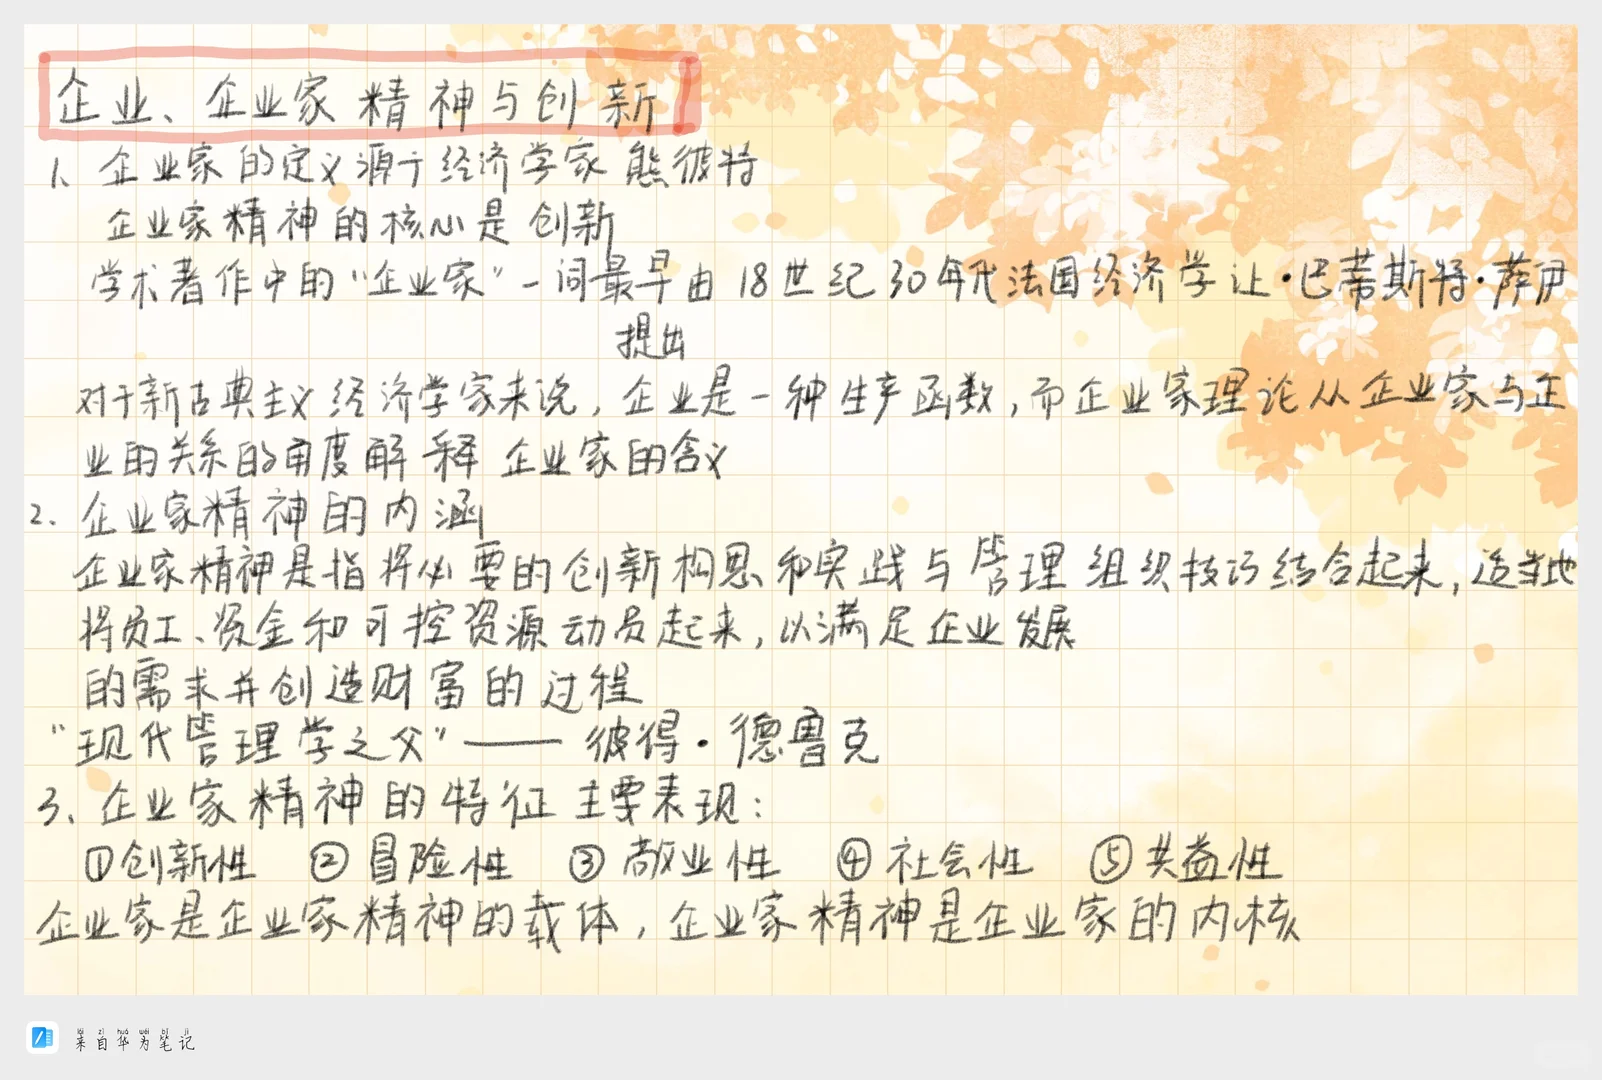 企业、企业家精神与创新
1、企业家的定义源于经济学家熊彼特
企业家精神的核心是创新
学术著作中的“企业家”一词最早由18世纪30年代法国经济学让·巴蒂斯特·萨伊
提出
对于新古典主义经济学家来说,企业是一种生产函数,而企业家理论从企业家与企
业的关系的角度解释企业家的含义
2.企业家精神的内涵
企业家精神是指将必要的创新构思和实践与管理组织技巧结合起来,适当地
将员工、资金和可控资源动员起来,以满足企业发展
的需求并创造财富的过程
“现代管理学之父”——彼得·德鲁克
3、企业家精神的特征主要表现:
①创新性 ②冒险性 ③敬业性 ④社会性 ⑤共益性
企业家是企业家精神的载体,企业家精神是企业家的内核
lái zì huá wéi bǐ jì
来自华为笔记